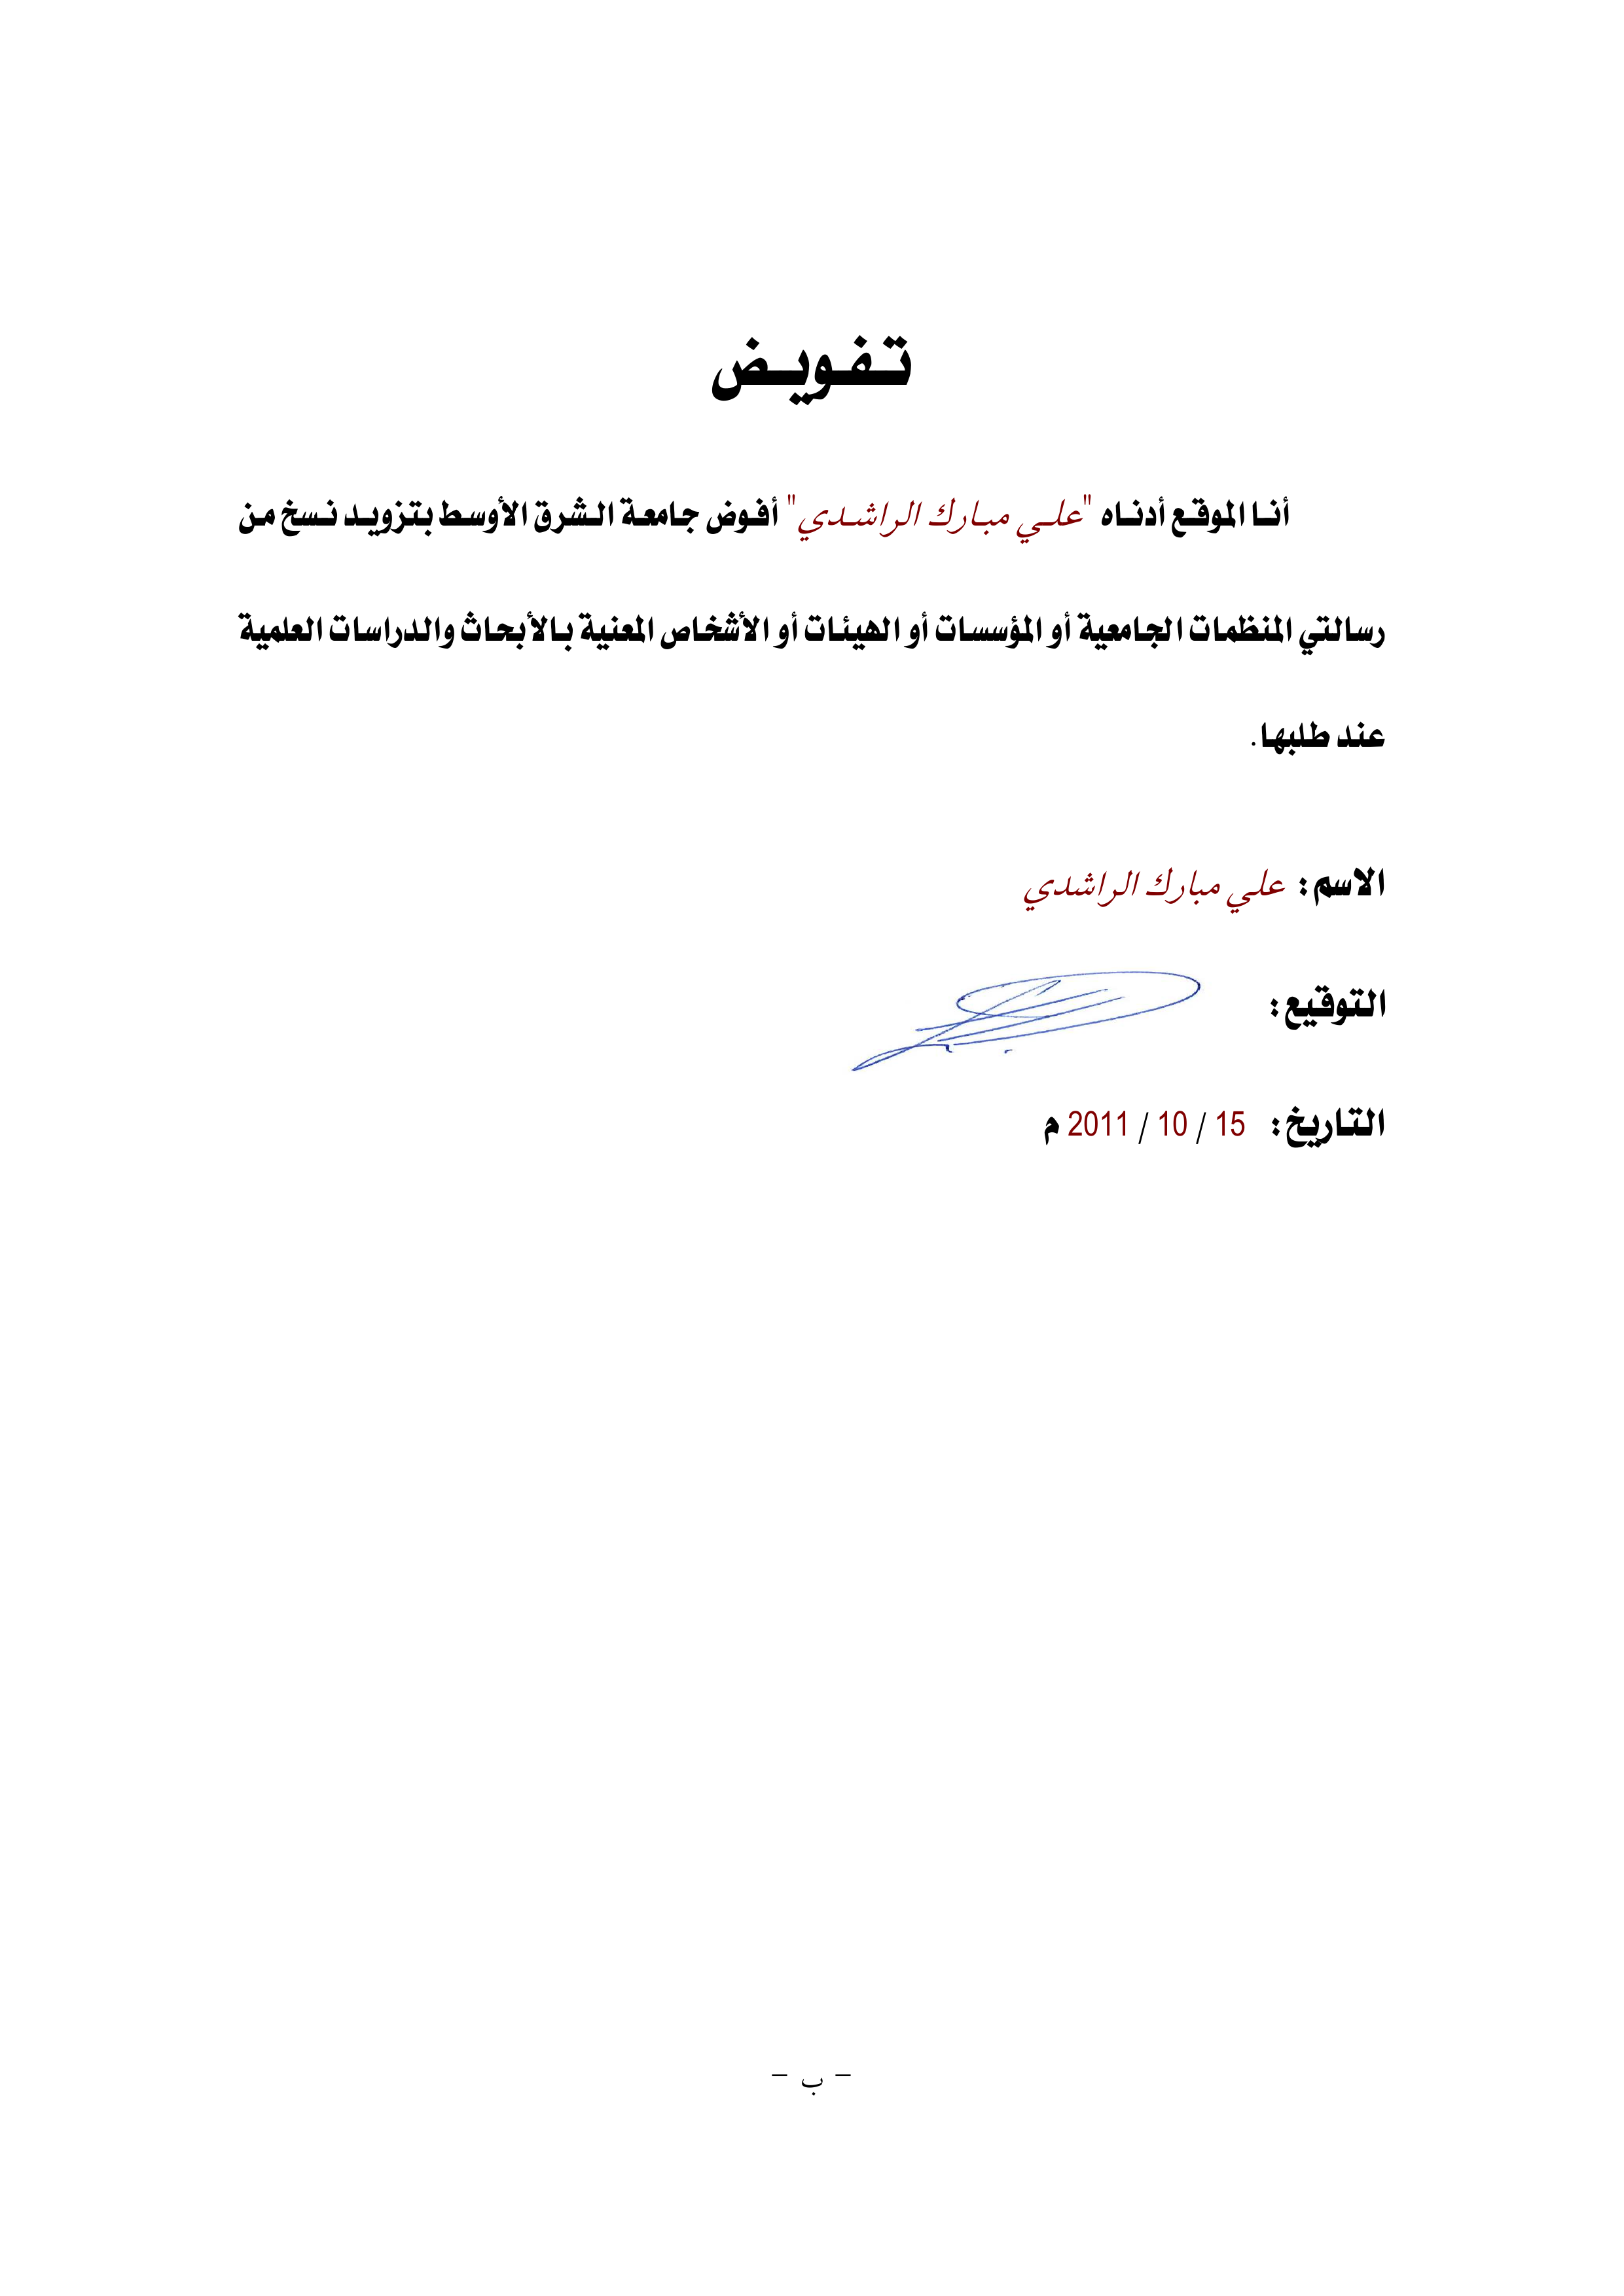 تفويض
أنا الموقع أدناه "علي مبارك الراشدي" أفوض جامعة الشرق الأوسط بتزويد نسخ من
رسالتي المنظمات الجامعية أو المؤسسات أو الهيئات أو الأشخاص المعنية بالأبحاث والدراسات العلمية
عند طلبها.
الاسم: علي مبارك الراشدي
التوقيع:
التاريخ: 15 / 10 / 2011 م
- ب -